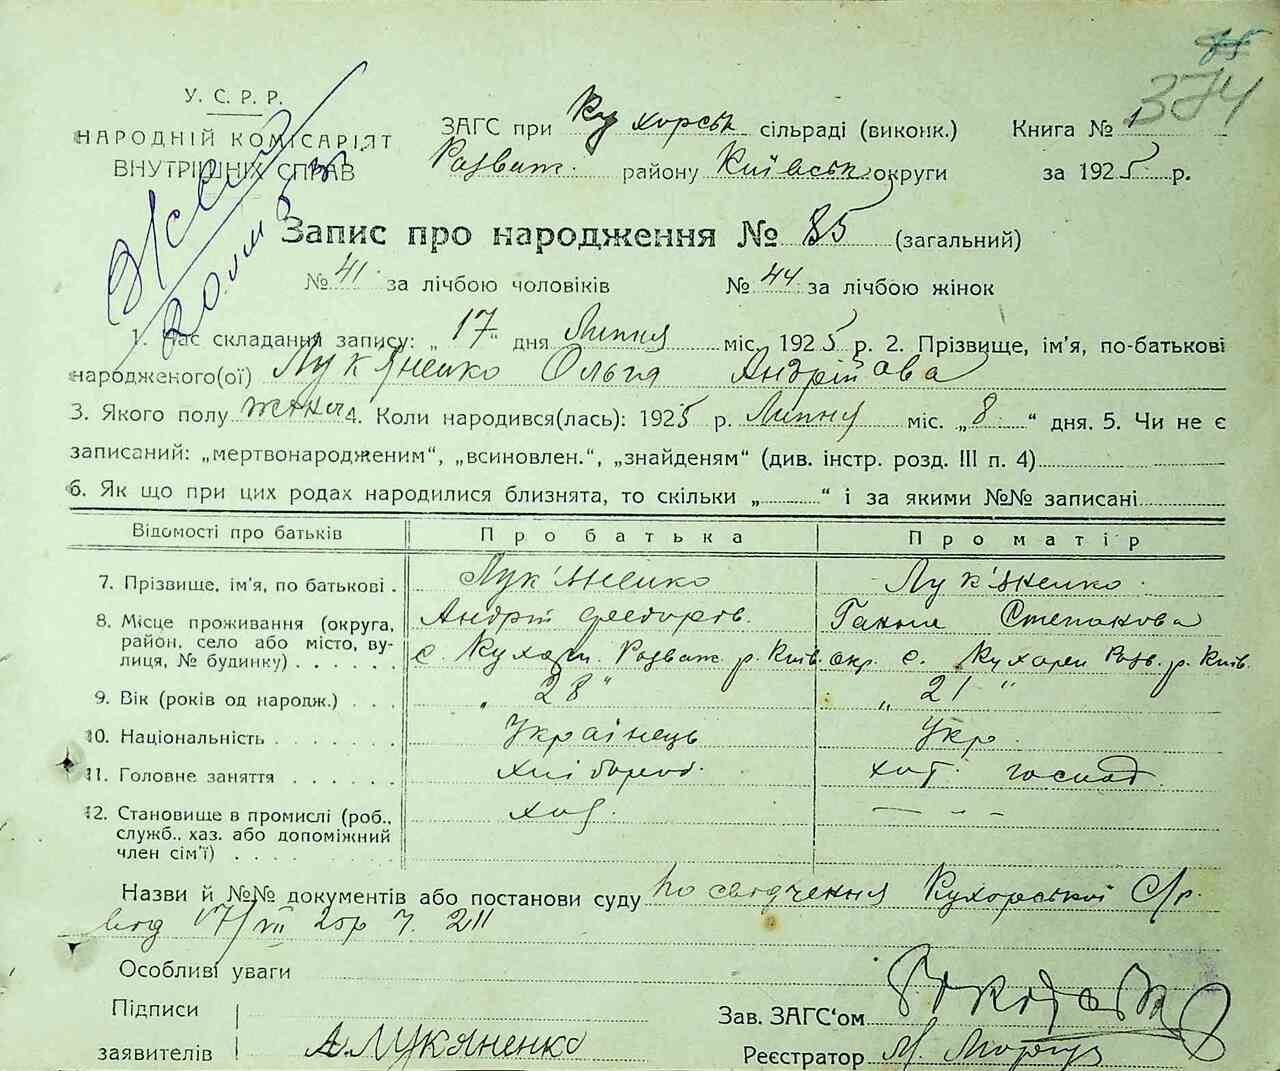 374
У. С. Р. Р.
НАРОДНІЙ КОМІСАРІЯТ
ВНУТРІШНІХ СПРАВ
ЗАГС при Кухорськ сільраді (виконк.) Книга № 1
Розваж. району Київськ округи за 1925 р.
Запис про народження № 85 (загальний)
№ 41 за лічбою чоловіків № 44 за лічбою жінок
1. Час складання запису: „17“ дня Липня міс. 1925 р. 2. Прізвище, ім'я, по-батькові
народженого(ої) Лук'яненко Ольга Андрійова
3. Якого полу жіноч 4. Коли народився(лась): 1925 р. Липня міс. „8“ дня. 5. Чи не є
записаний: „мертвонародженим“, „всиновлен.“, „знайденям“ (див. інстр. розд. III п. 4)
6. Як що при цих родах народилися близнята, то скільки „ “ і за якими №№ записані
Відомості про батьків Про батька Про матір
7. Прізвище, ім'я, по батькові . Лук'яненко Лук'яненко
8. Місце проживання (округа, Андрій Федоров. Ганна Степанова
район, село або місто, ву-
лиця, № будинку) . . . . . с. Кухари Розваж. р. Київ. окр. с. Кухари Розв. р. Київ.
9. Вік (років од народж.) . . . „28“ „21“
10. Національність . . . . . . . Українець Укр.
11. Головне заняття . . . . . . хлібороб. хат. господ.
12. Становище в промислі (роб., хаз. — - -
служб., хаз. або допоміжний
член сім'ї) . . . .
Назви й №№ документів або постанови суду по свідчення Кухорської С/р.
від 17/VII 25р ч. 211
Особливі уваги
Підписи
заявителів А. Лукяненко
Зав. ЗАГС'ом
Реєстратор М.